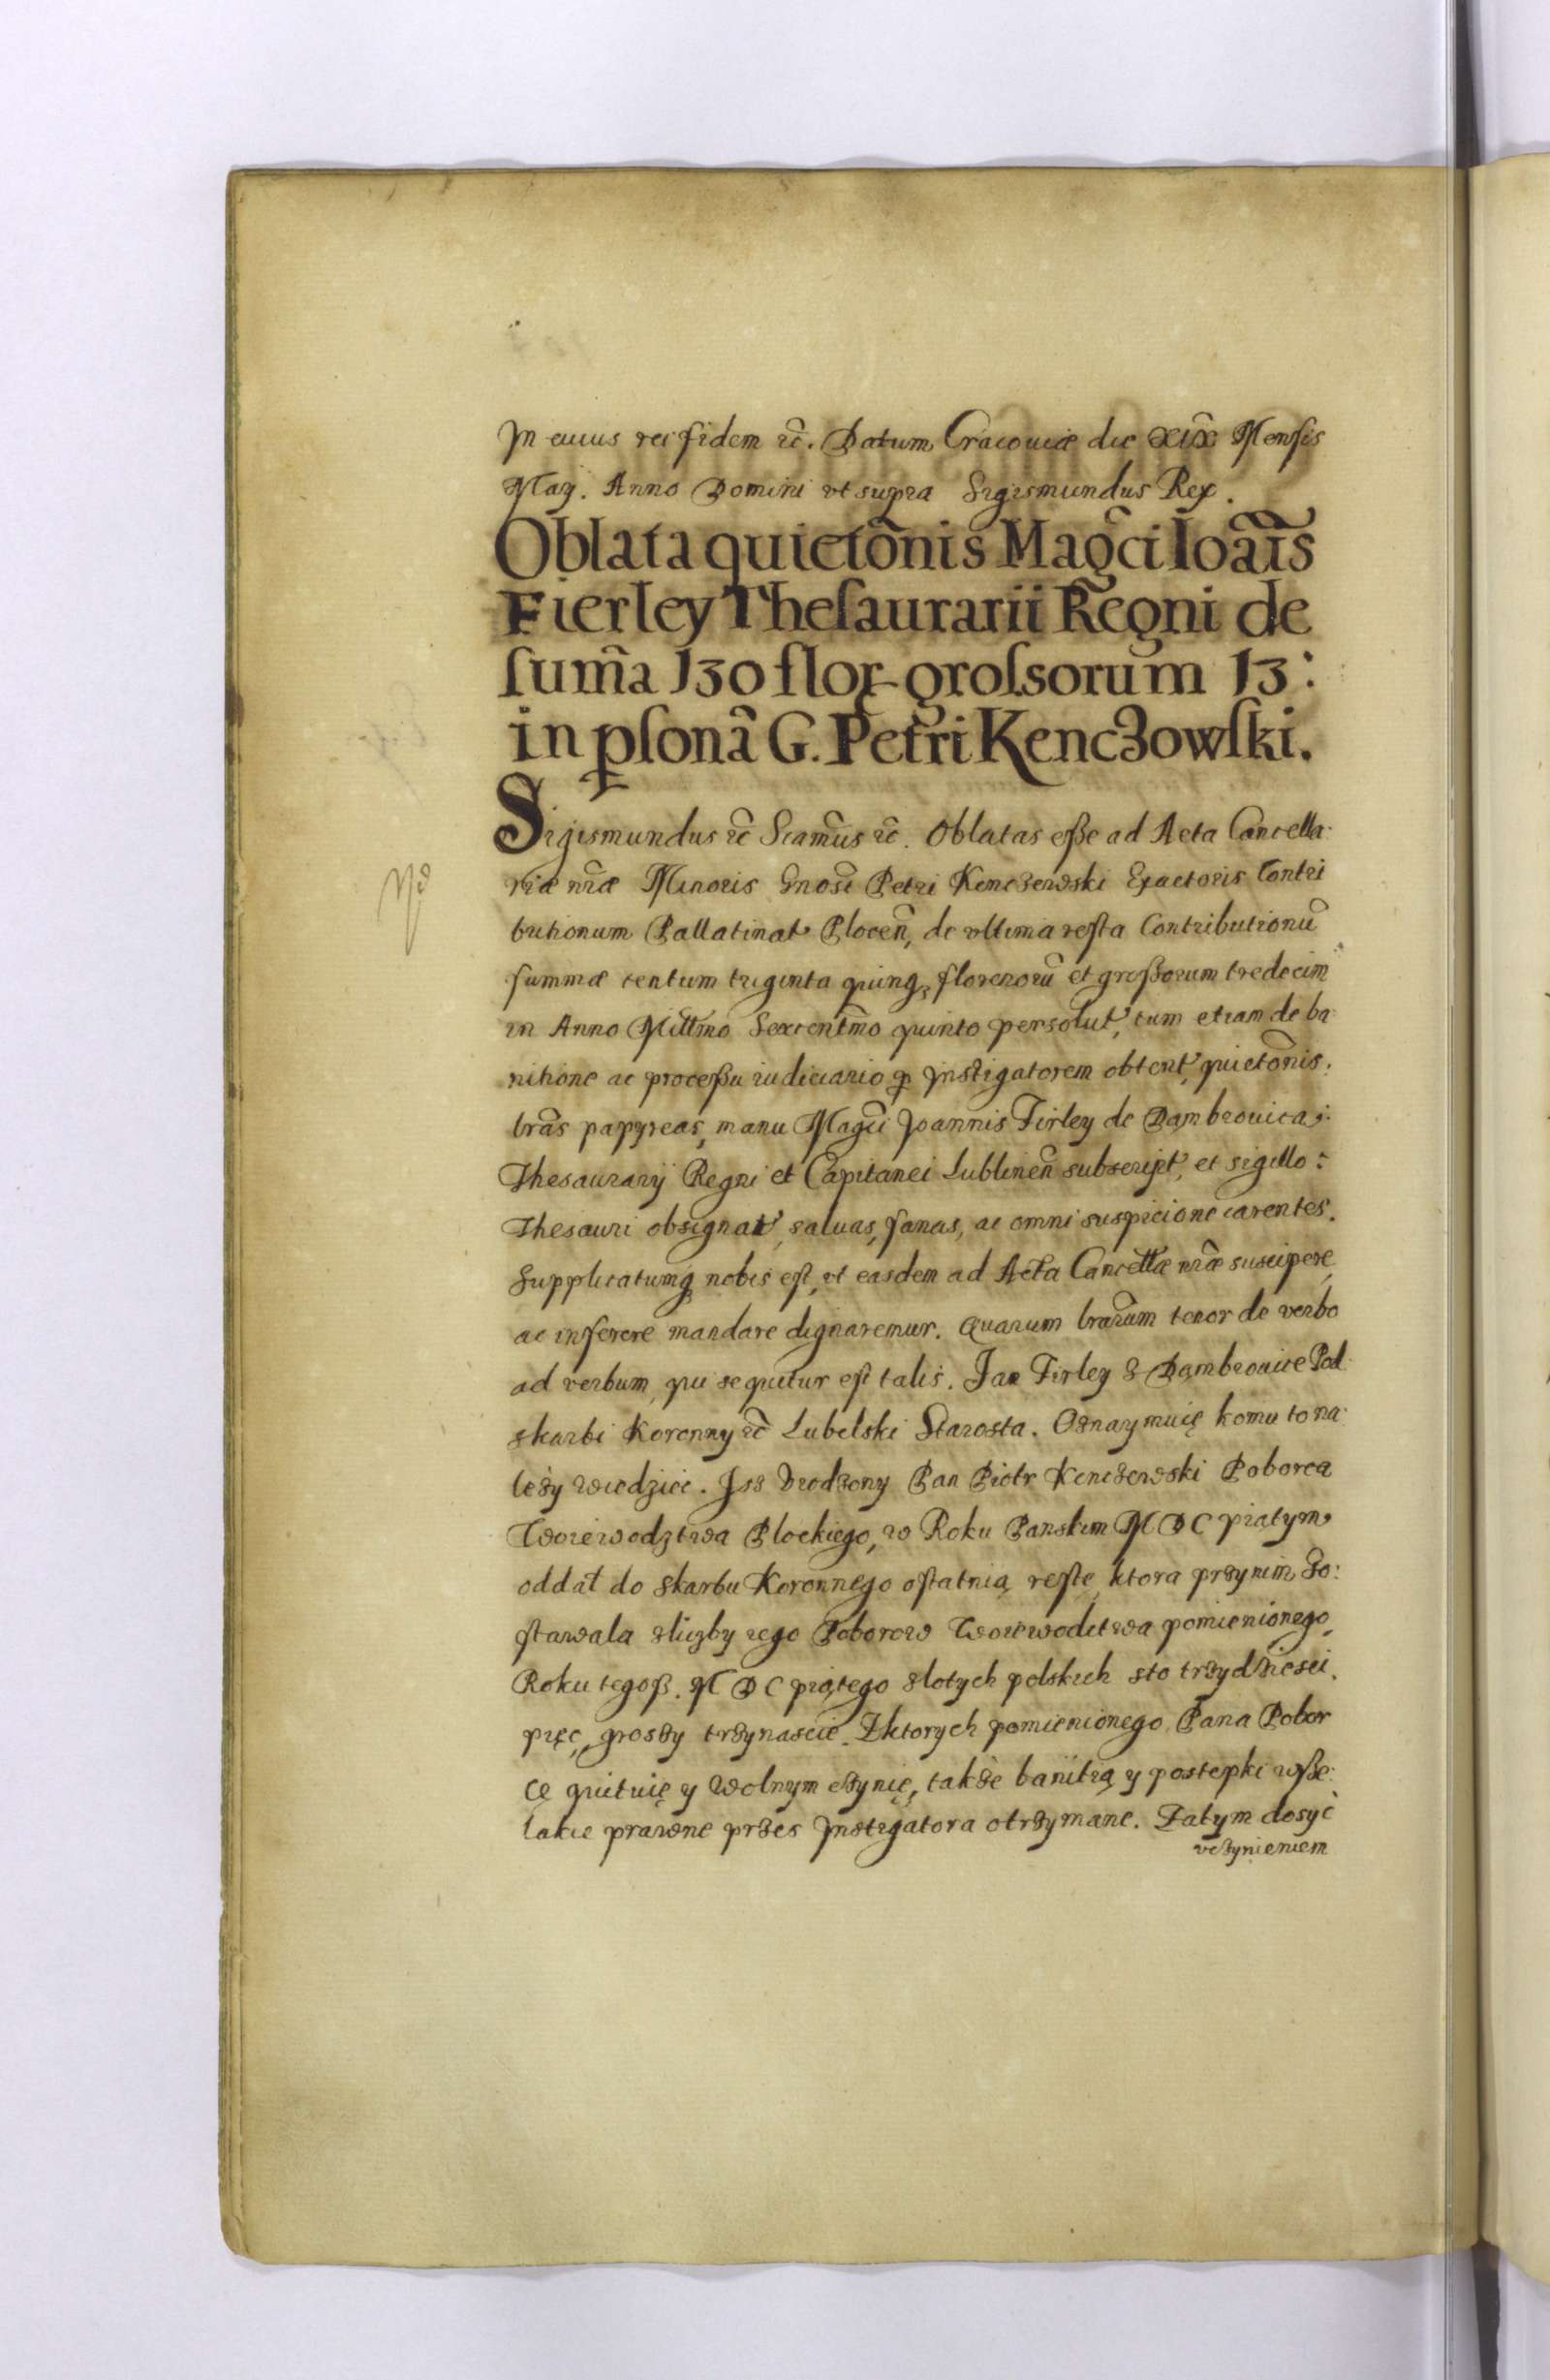 In cuius rei fidem ꝛc̃. Datum Cracouiæ die XIX Mensis
Maij. Anno Domini vt supra Sigismundus Rex.
Oblata quietõnis Mag̃ci Ioãis
Fierley Thesaurarii Regni de
sum̃a 130 flor. grossorum 13:
in psonã G. Petri Kenczowski.
Sigismundus ꝛc̃ Sciam̃us ꝛc̃. Oblatas esse ad Acta Cancella-
riæ nr̃æ Minoris Gnosi Petri Kenczewski Exactoris Contri
butionum Pallatinat' Plocen̄, de vltima resta Contributionũ
summæ centum triginta quinqꝫ florenorũ et grossorum tredecim
in Anno Millmo Sexcentmo quinto persolut', tum etiam de ba
nitione ac processu iudiciario ꝑ Instigatorem obtent' quietõnis.
lrãs papyreas, manu Magci Joannis Firley de Dambrouica:
Thesaurarij Regni et Capitanei Lublinen̄ subscript', et sigillo:
Thesauri obsignat', saluas, sanas, ac omni suspicione carentes.
Supplicatumqꝫ nobis est, vt easdem ad Acta Cancellæ nr̃æ suscipere,
ac inserere mandare dignaremur. Quarum lrãrum tenor de verbo
ad verbum, qui sequitur est talis. Jan Firley z Dąmbrouice Pod-
skarbi Koronny ꝛc̃ Lubelski Starosta. Oznaymuię komu to na-
leży wiedzieć. Isz Vrodzony Pan Piotr Kenczewski Poborca
Woiewodztwa Plockiego, w Roku Panskim MDC piątym
oddał do skarbu Koronnego ostatnią restę, ktora przynim zo:
stawala zliczby iego Poborow Woiewodctwa pomienionego,
Roku tegoß. MDC piątego zlotych polskich sto trzydziesci.
pięć, groszy trzynascie. Zktorych pomienionego Pana Pobor
cę quituię y wolnym czynię, także banitią y postępki wße:
lakie prawne przes Instigatora otrzymane. Zatym dosyć
vczynieniem